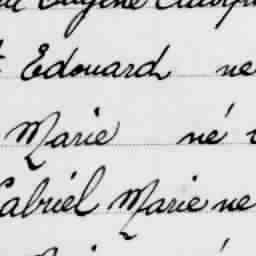 Eugène
Edouard ne
Marie né
Gabriel Marie ne